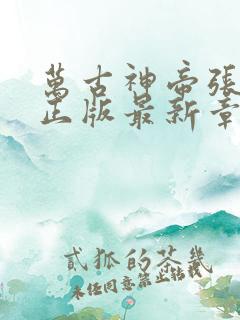 萬古神帝張
正版最新章
貳狐的茶幾
未經同意禁止轉載